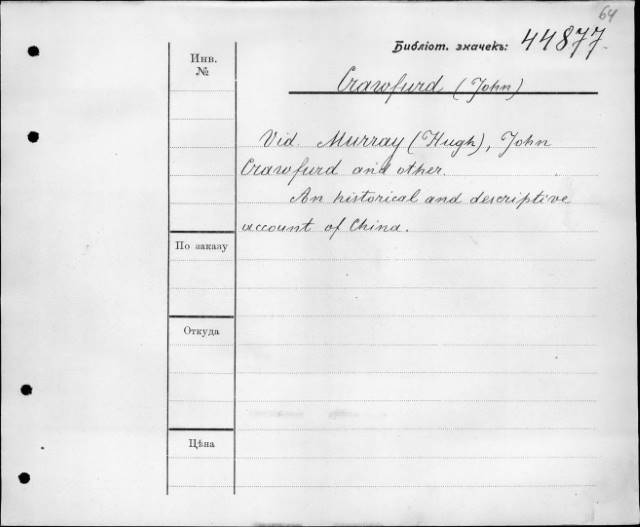 64
Библіот. значекъ: 44877.
Инв.
№
Crawfurd (John)
Vid. Murray (Hugh), John
Crawfurd and other.
An historical and descriptive
account of China.
По заказу
Откуда
Цѣна